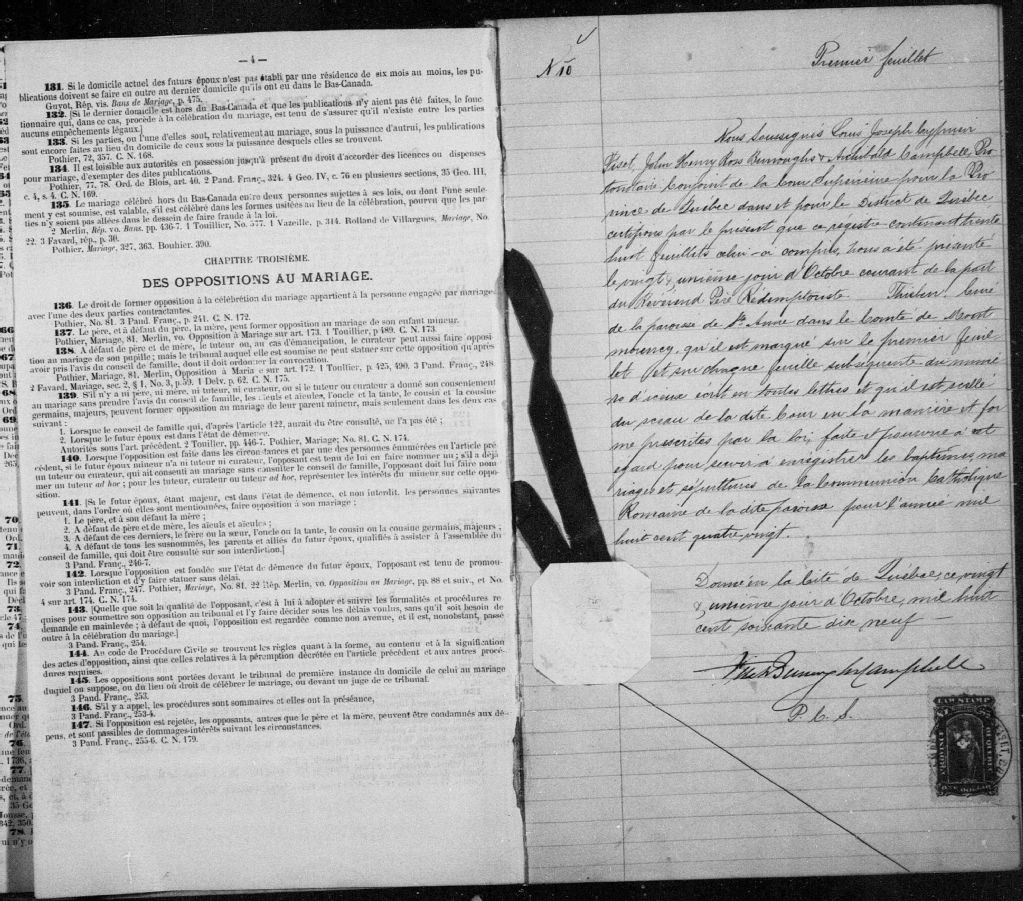 — 4 —
131. Si le domicile actuel des futurs époux n'est pas établi par une résidence de six mois au moins, les pu-
blications doivent se faire en outre au dernier domicile qu'ils ont eu dans le Bas-Canada.
Guyot, Rép. vis. Bans de Mariage, p. 475.
132. [Si le dernier domicile est hors du Bas-Canada et que les publications n'y aient pas été faites, le fonc-
tionnaire qui, dans ce cas, procède à la célébration du mariage, est tenu de s'assurer qu'il n'existe entre les parties
aucuns empêchements légaux.]
133. Si les parties, ou l'une d'elles sont, relativement au mariage, sous la puissance d'autrui, les publications
sont encore faites au lieu du domicile de ceux sous la puissance desquels elles se trouvent.
Pothier, 72, 357. C. N. 168.
134. Il est loisible aux autorités en possession jusqu'à présent du droit d'accorder des licences ou dispenses
pour mariage, d'exempter des dites publications.
Pothier, 77, 78. Ord. de Blois, art. 40. 2 Pand. Franç., 324. 4 Geo. IV, c. 76 en plusieurs sections, 35 Geo. III,
c. 4, s. 4. C. N. 169.
135. Le mariage célébré hors du Bas-Canada entre deux personnes sujettes à ses lois, ou dont l'une seule-
ment y est soumise, est valable, s'il est célébré dans les formes usitées au lieu de la célébration, pourvu que les par-
ties n'y soient pas allées dans le dessein de faire fraude à la loi.
2 Merlin, Rép. vo. Bans. pp. 436-7. 1 Touiller, No. 577. 1 Vazeille, p. 314. Rolland de Villargues, Mariage, No.
22. 3 Favard, rép., p. 30.
Pothier, Mariage, 327, 363. Bouhier. 390.
CHAPITRE TROISIÉME.
DES OPPOSITIONS AU MARIAGE.
136. Le droit de former opposition à la célébrêtion du mariage appartient à la personne engagée par mariage
avec l'une des deux parties contractantes.
Pothier, No. 81. 3 Pand. Franç., p. 241. C. N. 172.
137. Le père, et à défaut du père, la mère, peut former opposition au mariage de son enfant mineur.
Pothier, Mariage, 81. Merlin, vo. Opposition à Mariage sur art. 173. 1 Touiller, p 489. C. N. 173.
138. A défaut de père et de mère, le tuteur ou, au cas d'émancipation, le curateur peut aussi faire opposi-
tion au mariage de son pupille; mais le tribunal auquel elle est soumise ne peut statuer sur cette opposition qu'après
avoir pris l'avis du conseil de famille, dont il doit ordonner la convocation.
Pothier, Mariage, 81. Merlin, Opposition à Maria e sur art. 172, 1 Toullier, p 425, 490. 3 Pand. Franç., 248
2 Favard, Mariage, sec. 2, § 1. No. 3, p. 59. 1 Delv. p. 62. C. N. 175.
139. S'il n'y a ni père, ni mère, ni tuteur, ni curateur, ou si le tuteur ou curateur a donné son consentement
au mariage sans prendre l'avis du conseil de famille, les aieuls et aïeules, l'oncle et la tante, le cousin et la cousine
germains, majeurs, peuvent former opposition au mariage de leur parent mineur, mais seulement dans les deux cas
suivant :
1. Lorsque le conseil de famille qui, d'après l'article 122, aurait du être consulté, ne l'a pas été ;
2. Lorsque le futur époux est dans l'état de démence.
Autorités sous l'art. précédent. 2 Touiller, pp. 446-7. Pothier, Mariage; No. 81. C. N. 174.
140. Lorsque l'opposition est faite dans les circonstances et par une des personnes énumérées en l'article pré-
cédent, si le futur époux mineur n'a ni tuteur ni curateur, l'opposant est tenu de lui en faire nommer un; s'il a déjà
un tuteur ou curateur, qui ait consenti au mariage sans consulter le conseil de famille, l'opposant doit lui faire nom-
mer un tuteur ad hoc ; pour les tuteur, curateur ou tuteur ad hoc, représenter les intérêts du mineur sur cette oppo-
sition.
141. [Si le futur époux, étant majeur, est dans l'état de démence, et non interdit. les personnes suivantes
peuvent, dans l'ordre où elles sont mentionnées, faire opposition à son mariage ;
1. Le père, et à son défaut la mère ;
2. A défaut de père et de mère, les aïeuls et aïeules ;
3. A défaut de ces derniers, le frère ou la sœur, l'oncle ou la tante, le cousin ou la cousine germains, majeurs ;
4. A défaut de tous les susnommés, les parents et alliés du futur époux, qualifiés à assister à l'assemblée du
conseil de famille, qui doit être consulté sur son interdiction.]
3 Pand. Franç., 246-7.
142. Lorsque l'opposition est fondée sur l'état de démence du futur époux, l'opposant est tenu de promou-
voir son interdiction et d'y faire statuer sans délai.
3 Pand. Franç., 247. Pothier, Mariage, No. 81. 22 Rép. Merlin, vo. Opposition au Mariage, pp. 88 et suiv., et No.
4 sur art. 174. C. N. 174.
143. [Quelle que soit la qualité de l'opposant, c'est à lui à adopter et suivre les formalités et procédures re-
quises pour soumettre son opposition au tribunal et l'y faire décider sous les délais voulus, sans qu'il soit besoin de
demande en mainlevée ; à défaut de quoi, l'opposition est regardée comme non avenue, et il est, nonobstant, passé
outre à la célébration du mariage.]
3 Pand. Franç., 254.
144. Au code de Procédure Civile se trouvent les règles quant à la forme, au contenu et à la signification
des actes d'opposition, ainsi que celles relatives à la péremption décrétée en l'article précédent et aux autres procé-
dures requises.
145. Les oppositions sont portées devant le tribunal de première instance du domicile de celui au mariage
duquel on suppose, ou du lieu où droit de célébrer le mariage, ou devant un juge de ce tribunal.
3 Pand. Franç., 253.
146. S'il y a appel, les procédures sont sommaires et elles ont la préséance,
3 Pand. Franç., 253-4.
147. Si l'opposition est rejetée, les opposants, autres que le père et la mère, peuvent être condamnés aux dé-
pens, et sont passibles de dommages-intérêts suivant les circonstances.
3 Pand. Franç., 255-6. C. N. 179.
N 10
Premier feuillet
Nous soussignés Louis Joseph Cyprien
Fiset, John Henry Ross Burroughs & Archibald Campbell, Pro
tonotaire Conjoint de la Cour Supérieure pour la Pro
vince de Québec dans et pour le District de Québec
certifions par le présent que ce registre contenant trente
huit feuillets celui-ci compris, nous a été présenté
le vingt & unième jour d'Octobre courant de la part
du Révérend Père Rédemptoriste Thielen Curé
de la paroisse de Ste Anne dans le Comté de Mont
morency, qu'il est marqué sur le premier feuil
let et sur chaque feuille subséquente du numé
ro d'iceux écrit en toutes lettres et qu'il est scellé
du sceau de la dite Cour en la manière et for
me prescrites par la loi faite et pourvue à cet
égard pour servir à enregistrer les baptêmes, ma
riages et sépultures de la Communion Catholique
Romaine de la dite paroisse pour l'année mil
huit cent quatre vingt.
Donné en la Cité de Québec, ce vingt
& unième jour d'Octobre, mil huit
cent soixante dix neuf
Fiset Burroughs Campbell
P. C. S.
LAW STAMP
PROVINCE
OF QUEBEC
ONE DOLLAR